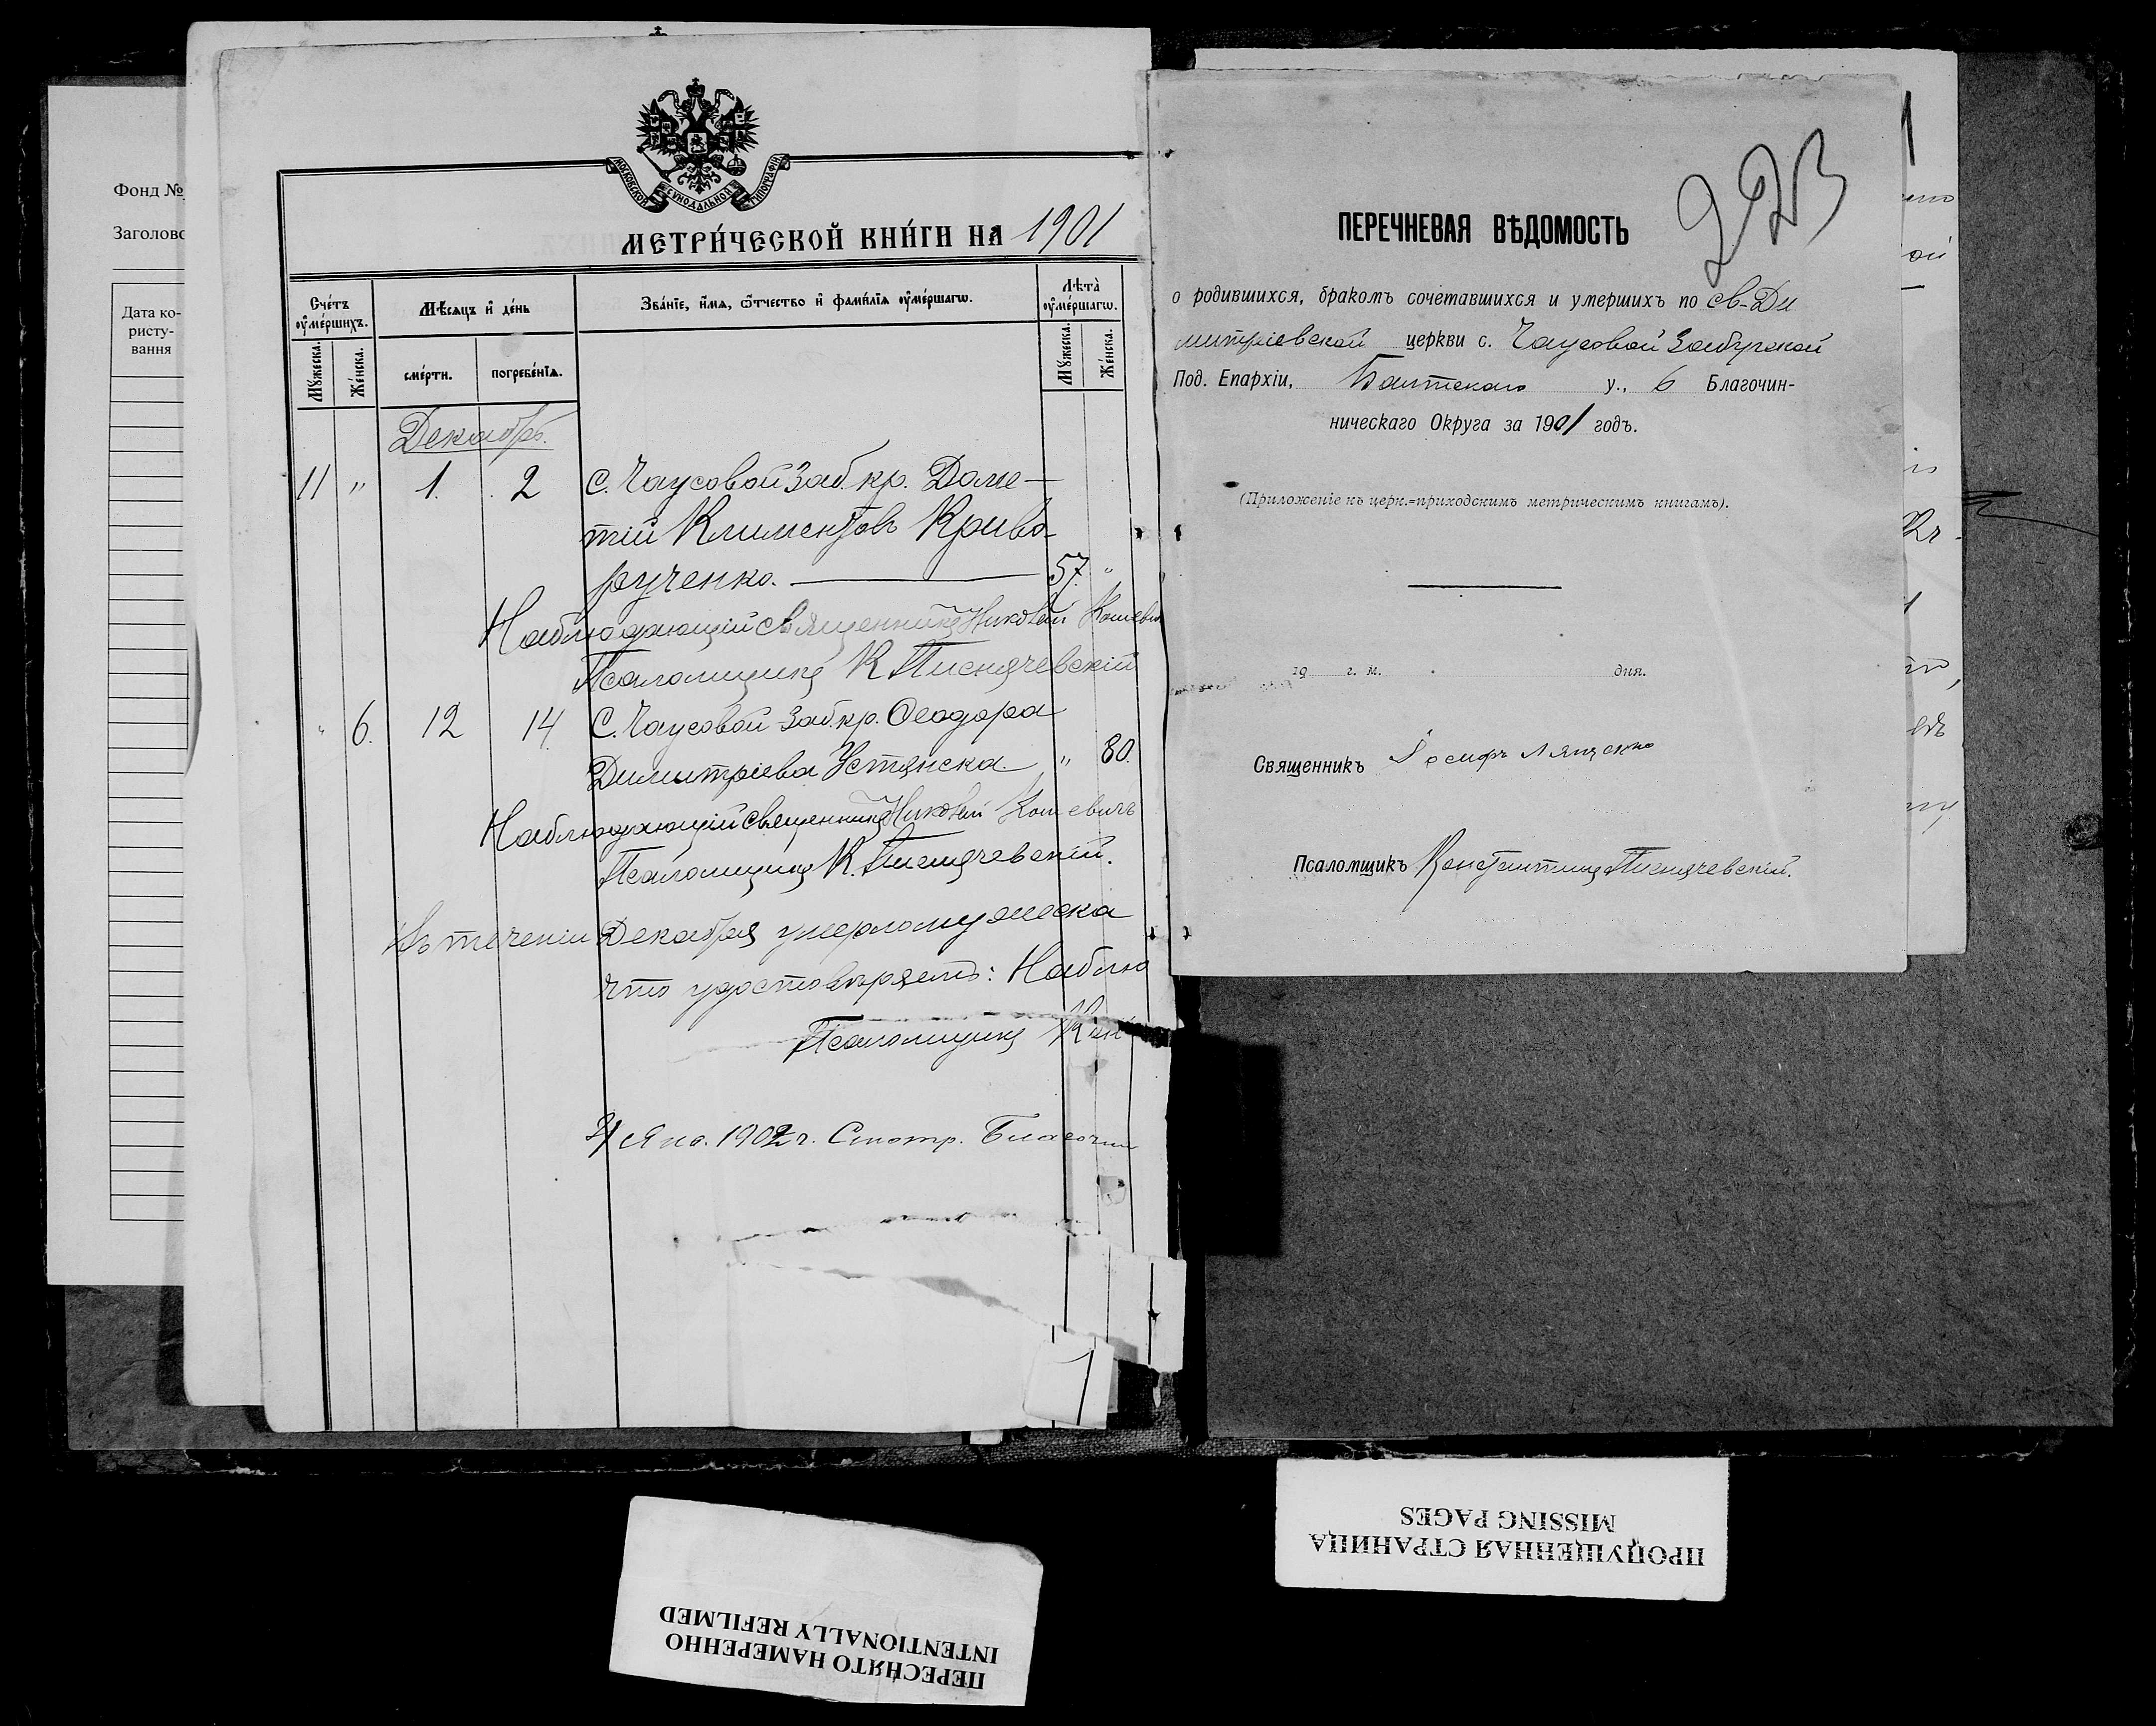 Фонд №
Заголово
Дата ко-
ристу-
вання
МОСКОВСКОЙ СѴНОДАЛЬНОЙ ТИПОГРАФІИ
МЕТРИ́ЧЕСКОЙ КНИ́ГИ НА 1901
Счéтъ ᲂу҆мéршихъ.
Мѣ́сяцъ и҆ дéнь
Звáнїе, и҆́мя, ѻ҆́тчество и҆ фами́лїя ᲂу҆мéршагѡ.
Лѣ́та ᲂу҆мéршагѡ.
Мꙋ́жеска.
Жéнска.
смéрти.
погребéнїѧ.
Мꙋ́жеска.
Жéнска.
Декабрь.
11 " 1. 2 С. Чаусовой Заб. кр. Доме-
тій Климентовъ Криво-
рученко. 57. "
Наблюдающій священникъ
Псаломщикъ К Писнячевскій
" 6. 12 14. С. Чаусовой Заб. кр. Ѳеодора
Димитріева Устянска. " 80.
Наблюдающій священникъ
Псаломщикъ К. Писнячевскій.
Въ теченіи Декабря умерло мужеска
что удостовѣряемъ: Наблю
Псаломщикъ Кон
1902 г. Смотр. Благочин
223
ПЕРЕЧНЕВАЯ ВѢДОМОСТЬ
о родившихся, бракомъ сочетавшихся и умершихъ по св-Ди
митріевской церкви с. Чаусовой Забугской
Под. Епархіи, Балтскаго у., 6 Благочин-
ническаго Округа за 1901 годъ.
(Приложеніе къ церк.=приходскимъ метрическимъ книгамъ).
19 г. м. дня.
Священникъ Іосифъ Лященко
Псаломщикъ Константинъ Писнячевскій.
ПЕРЕСНЯТО НАМЕРЕННО
INTENTIONALLY REFILMED
ПРОПУЩЕННАЯ СТРАНИЦА
MISSING PAGES